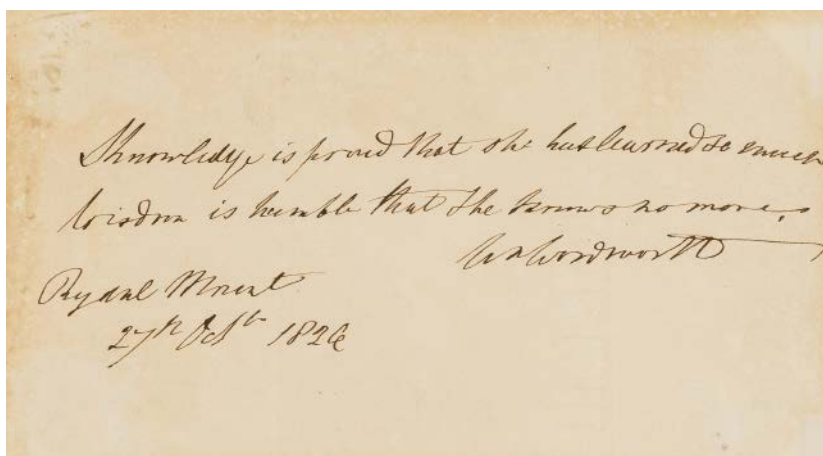 Knowledge is proud that she has learned so much
Wisdom is humble that she knows no more.
Wm Wordsworth
Rydal Mount
27th Octbr 1826